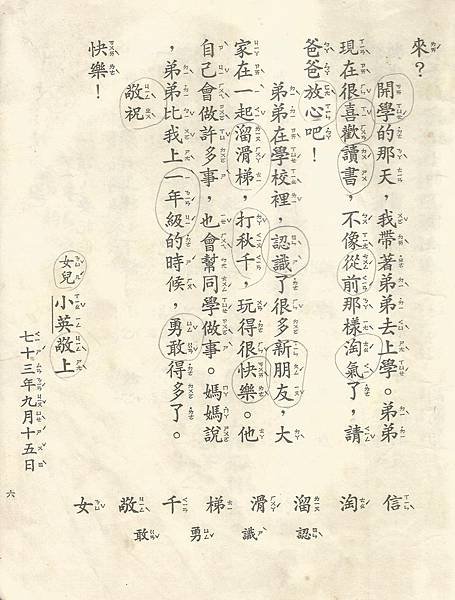 來?
開學的那天,我帶著弟弟去上學。弟弟
現在很喜歡讀書,不像從前那樣淘氣了,請
爸爸放心吧!
弟弟在學校裡,認識了很多新朋友,大
家在一起溜滑梯,打秋千,玩得很快樂。他
自己會做許多事,也會幫同學做事。媽媽說
,弟弟比我上一年級的時候,勇敢得多了。
敬祝
快樂!
女兒 小英敬上
七十三年九月十五日
信 淘 溜 滑 梯 千 敬 女
認 識 勇 敢
六